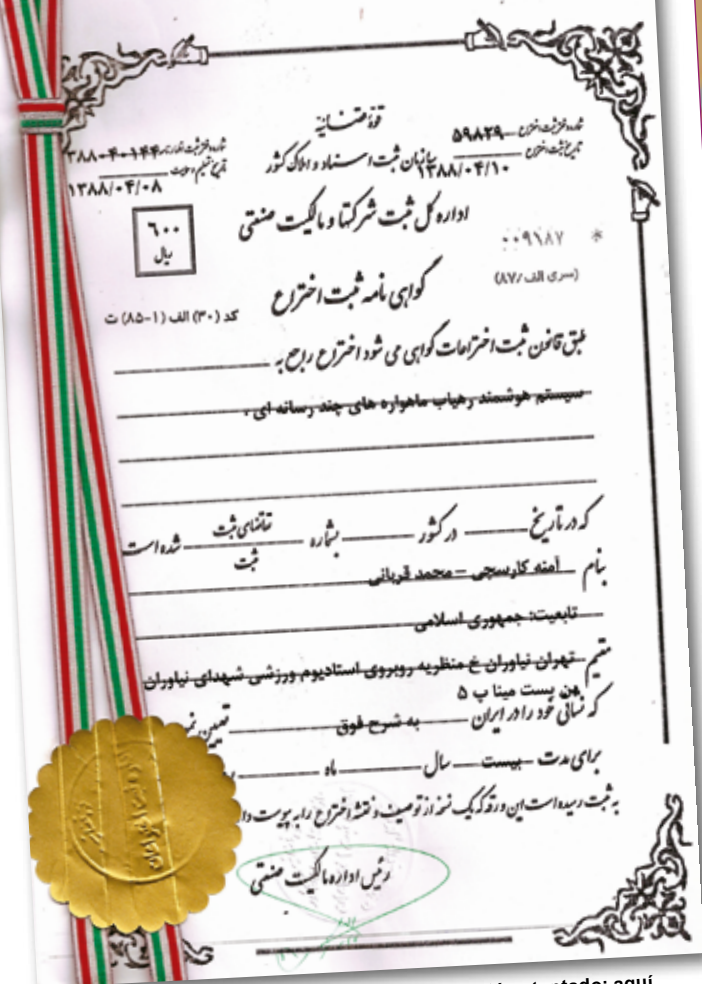 قوه قضائیه
شماره دفتر ثبت اختراع ۵۹۸۲۹
تاریخ ثبت اختراع ۱۳۸۸/۰۴/۱۰
سازمان ثبت اسناد و املاک کشور
شماره دفتر ثبت اظهارنامه ۳۸۸۰۴۰۱۴۴
تاریخ تسلیم ۱۳۸۸/۰۴/۰۸
اداره کل ثبت شرکتها و مالکیت صنعتی
۶۰۰
ریال
۰۰۹۱۸۷ *
(سری الف /۸۷)
گواهی نامه ثبت اختراع
کد (۳۰) الف (۱-۸۵) ت
طبق قانون ثبت اختراعات گواهی می شود اختراع راجع به
سیستم هوشمند رهیاب ماهواره های چند رسانه ای .
که در تاریخ در کشور بشماره تقاضای ثبت شده است
ثبت
بنام آمنه کارسچی – محمد قربانی
تابعیت: جمهوری اسلامی
مقیم تهران نیاوران خ منظریه روبروی استادیوم ورزشی شهدای نیاوران
بن بست مینا پ ۵
که نشانی خود را در ایران به شرح فوق تعیین نم
برای مدت بیست سال ماه
به ثبت رسیده است این ورقه که یک نسخه از توصیف و نقشه اختراع را به پیوست دا
رئیس اداره مالکیت صنعتی
aquí